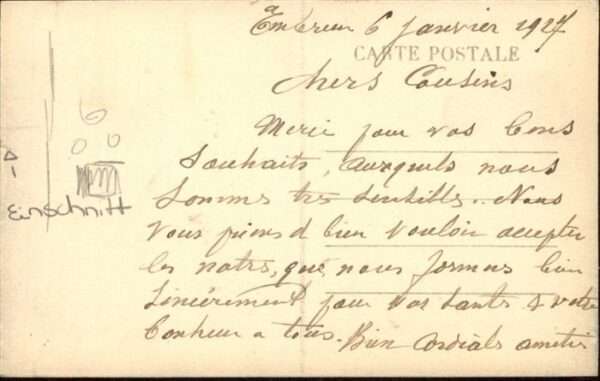 6 Janvier 1927
CARTE POSTALE
chers Cousins
Merci pour vos bons
souhaits, auxquels nous
sommes très sensibles.. Nous
vous prions d bien vouloir accepter
les notres, que nous formons bien
sincérement pour vos santé & votre
bonheur a tous. Bien cordials amitié
Einschnitt